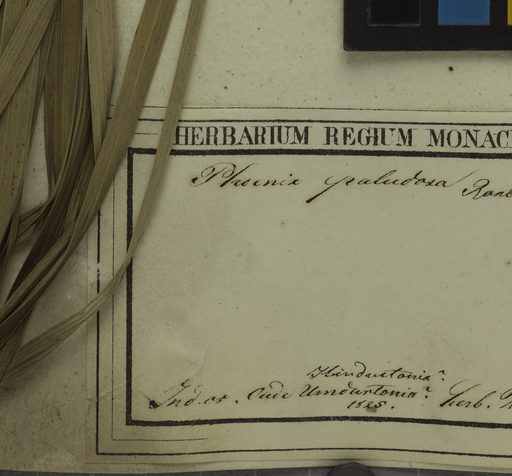 HERBARIUM REGIUM MONAC
Phoenix paludosa Roxb
Hindustania?
Ind. or. Cude Umdustonia? Herb.
1825.